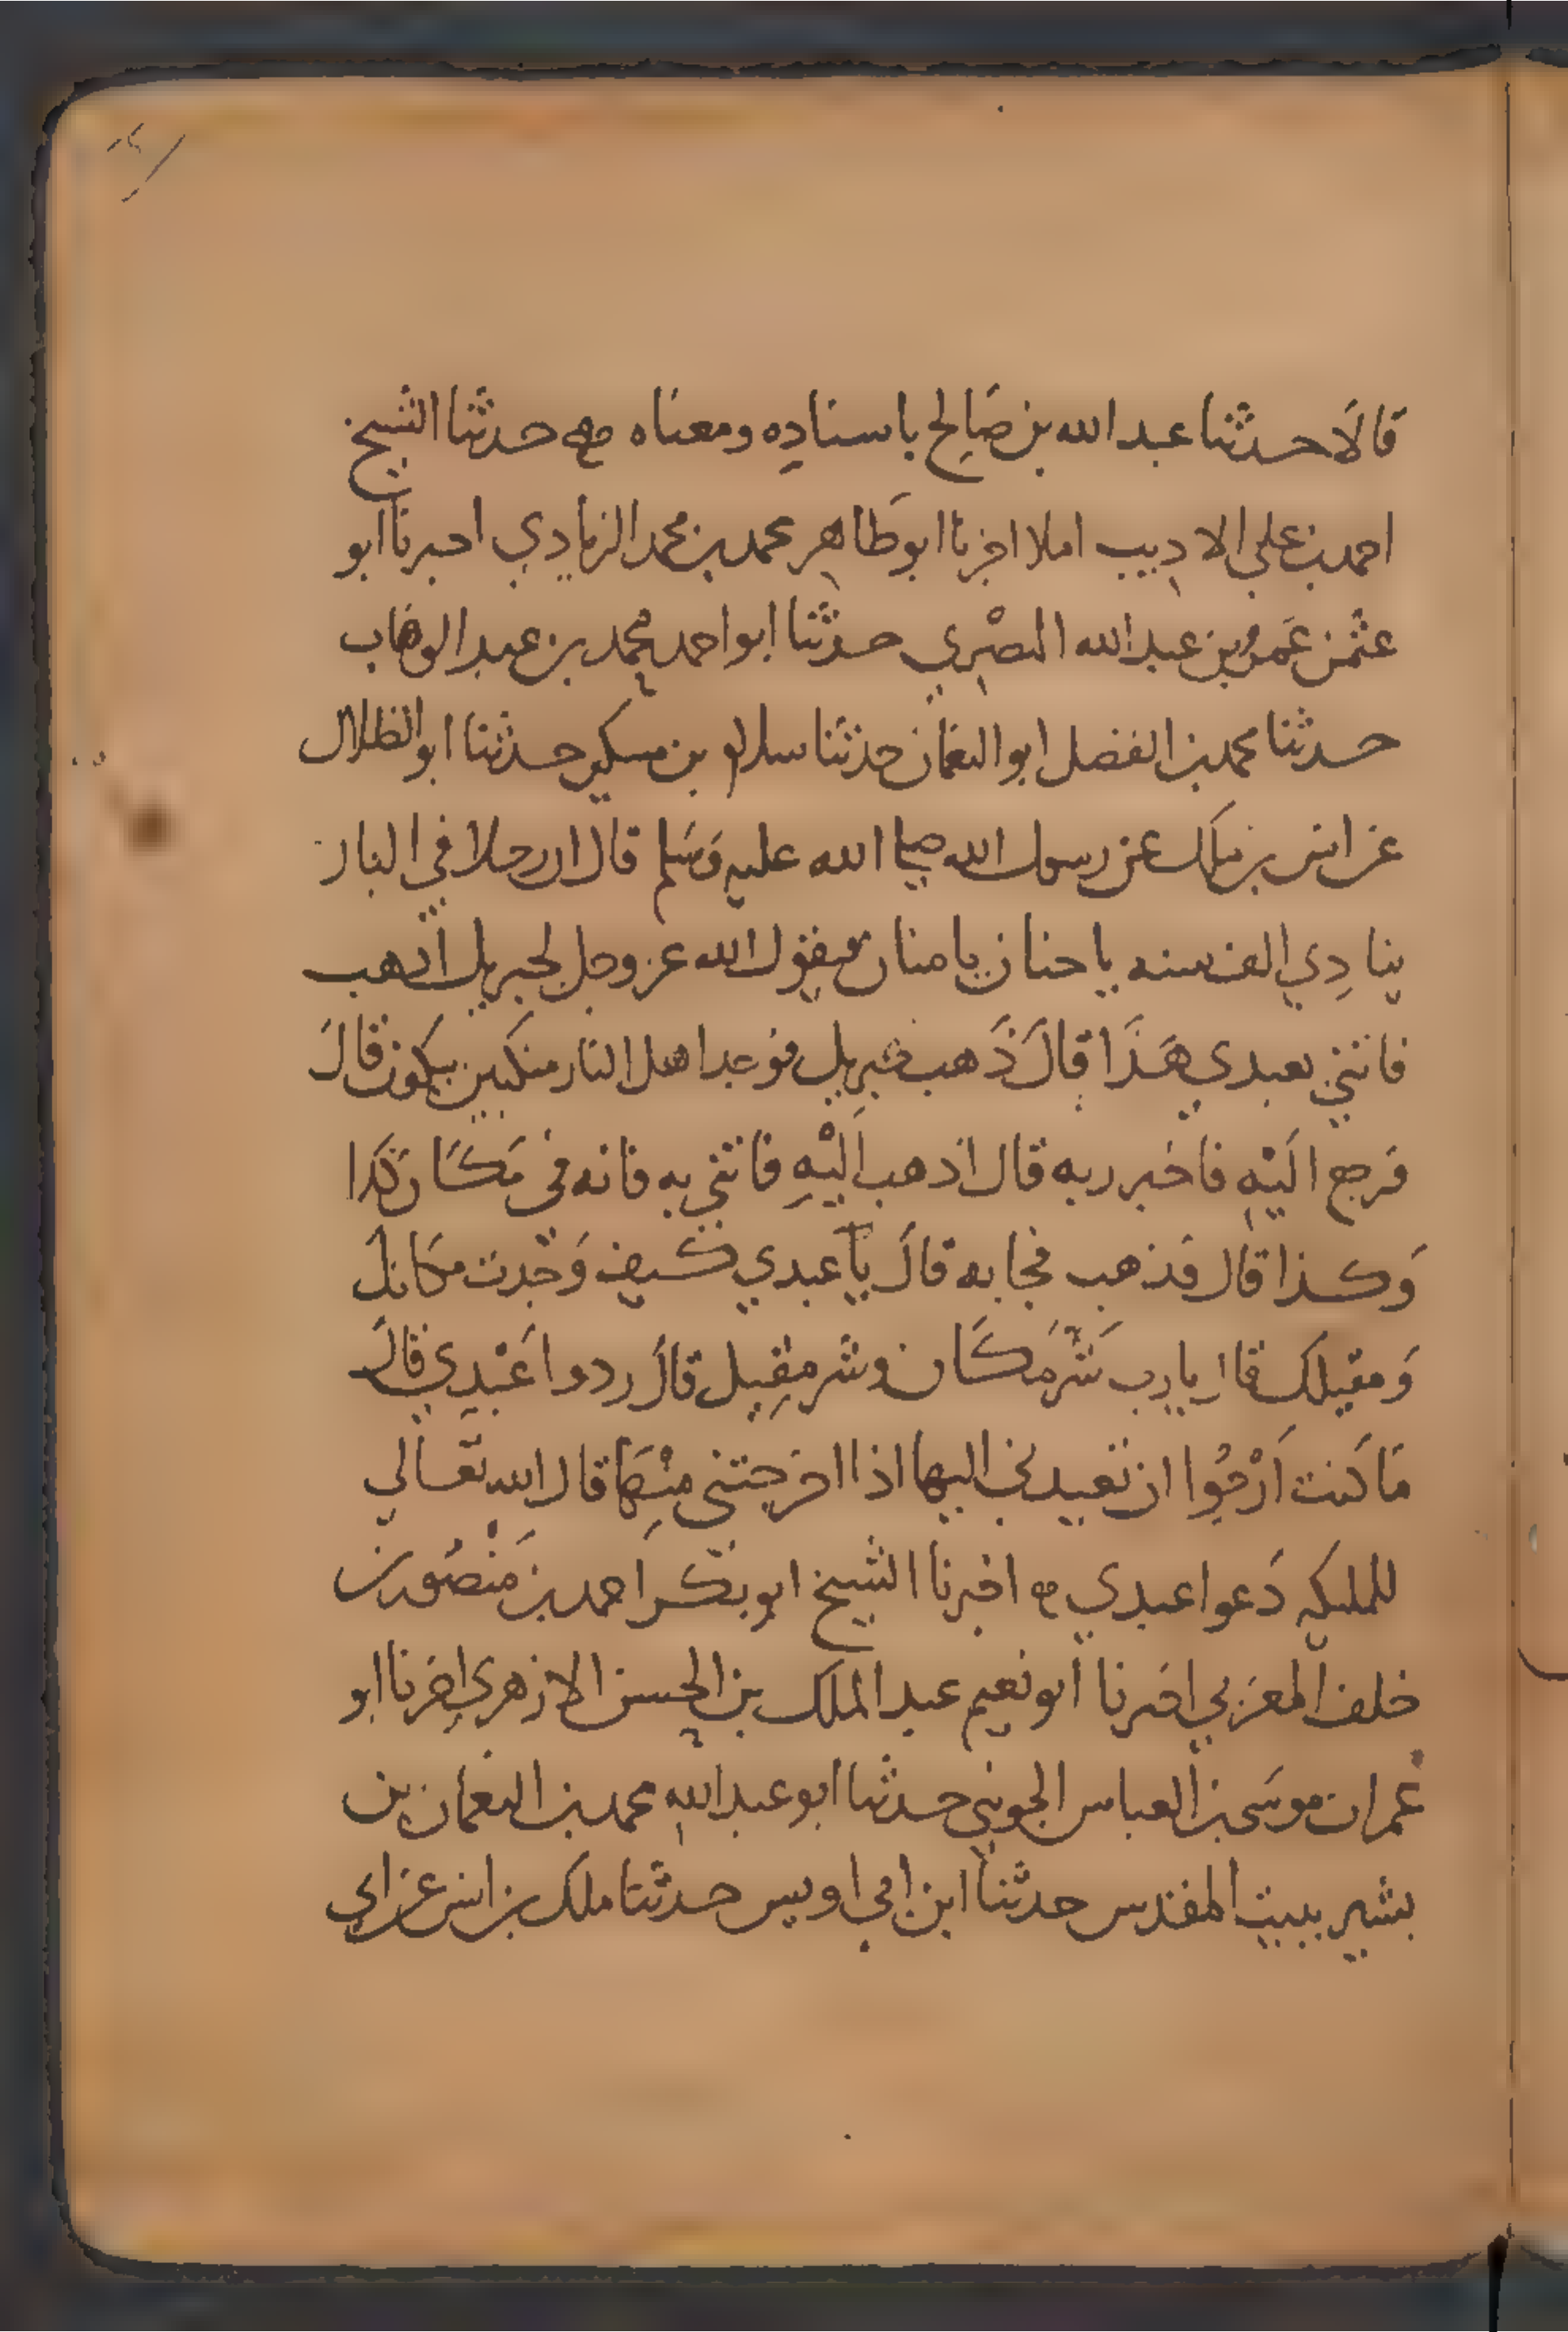 قالا حدثنا عبد الله بن صالح باسناده ومعناه حدثنا الشيخ
احمد بن علي الاديب املا اخبرنا ابو طاهر محمد بن محمد الزيادي اخبرنا ابو
عثمن عمرو بن عبد الله البصري حدثنا ابو احمد محمد بن عبد الوهاب
حدثنا محمد بن الفضل ابو النعمان حدثنا سلام بن مسكين حدثنا ابو الظلال
عن انس بن ملك عن رسول الله صلى الله عليه وسلم قال ان رجلا في النار
ينادي الف سنه يا حنان يا منان فيقول الله عز وجل لجبريل اذهب
فائتني بعبدي هذا قال ذهب جبريل فوجد اهل النار منكبين يبكون قال
فرجع اليه فاخبر ربه قال اذهب اليه فائتني به فانه في مكان كذا
وكذا قال فذهب فجا به قال يا عبدي كيف وجدت مكانك
ومقيلك قال يا رب شر مكان وشر مقيل قال ردوا عبدي قال
ما كنت ارجوا ان تعيدني اليها اذا اخرجتني منها قال الله تعالى
للمليكه دعوا عبدي اخبرنا الشيخ ابو بكر احمد بن منصور بن
خلف المغربي اخبرنا ابو نعيم عبد الملك بن الحسن الازهري اخبرنا ابو
عمران موسى بن العباس الجويني حدثنا ابو عبد الله محمد بن النعمان بن
بشير ببيت المقدس حدثنا ابن ابي اويس حدثنا ملك بن انس عن ابي